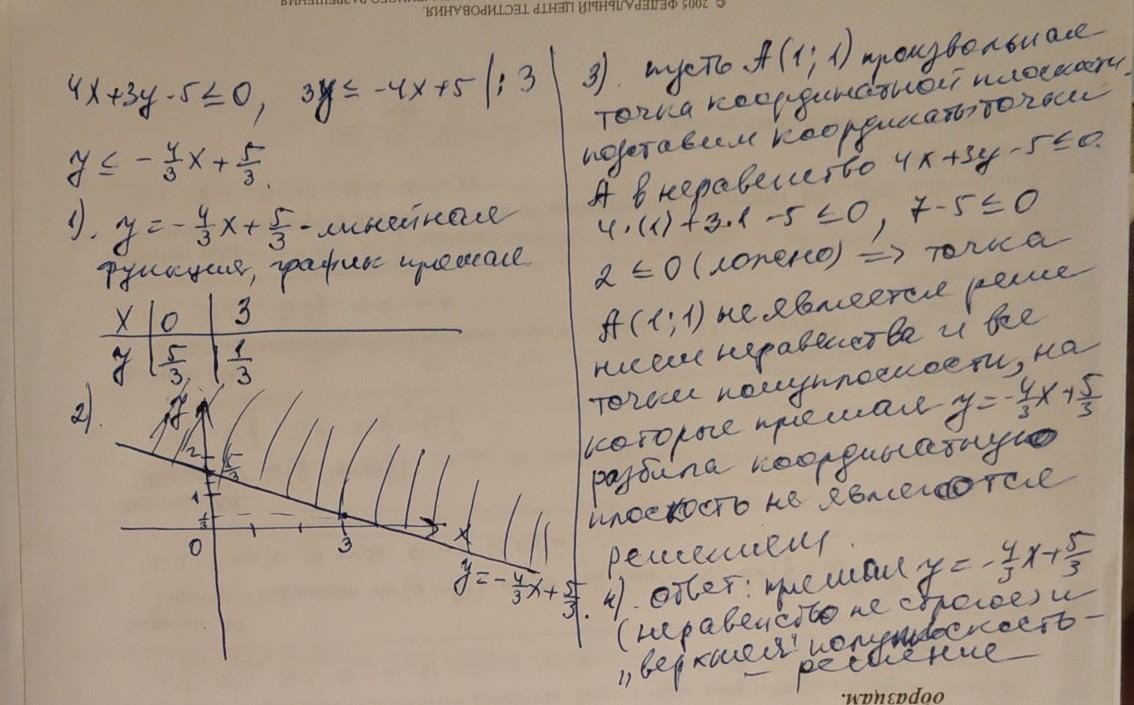 © 2005 ФЕДЕРАЛЬНЫЙ ЦЕНТР ТЕСТИРОВАНИЯ.
4x+3y-5≤0, 3y≤-4x+5 |:3
y ≤ -4/3x+5/3.
1). y=-4/3x+5/3 - линейная
функция, график прямая
x | 0 | 3
y | 5/3 | 1/3
2).
y
2
5/3
1
1/3
0
3
x
y=-4/3x+5/3.
3). пусть A(1;1) произвольная
точка координатной плоскости.
подставим координаты точки
A в неравенство 4x+3y-5≤0.
4·(1)+3·1-5≤0, 7-5≤0
2≤0 (ложно) => точка
A(1;1) не является реше
нием неравенства и все
точки полуплоскости, на
которые прямая y=-4/3x+5/3
разбила координатную
плоскость не являются
решением.
4). ответ: прямая y=-4/3x+5/3
(неравенство не строгое) и
„верхняя" полуплоскость -
- решение
образцам.